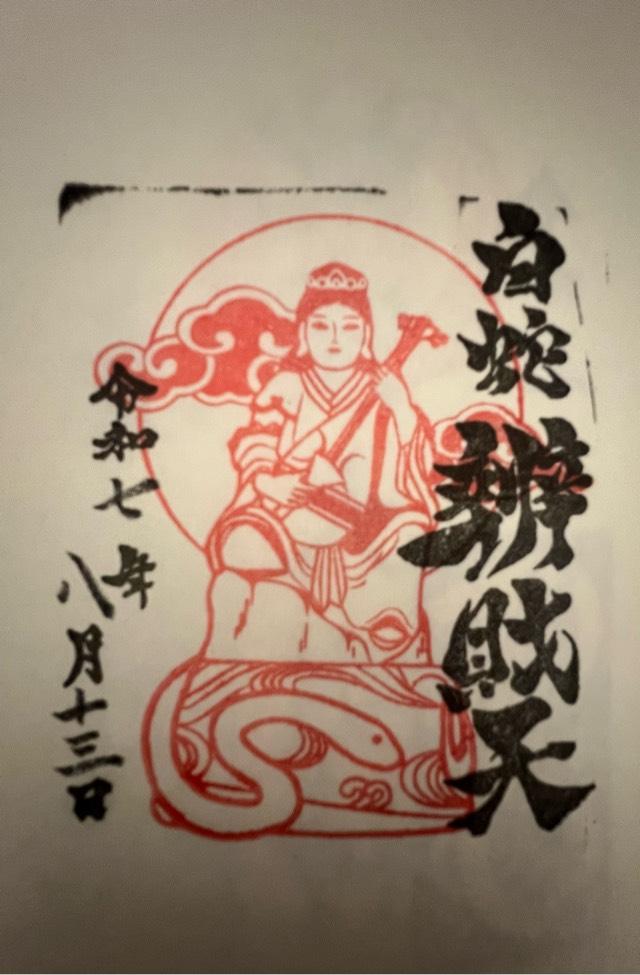 白蛇辨財天
令和七年
八月十三日